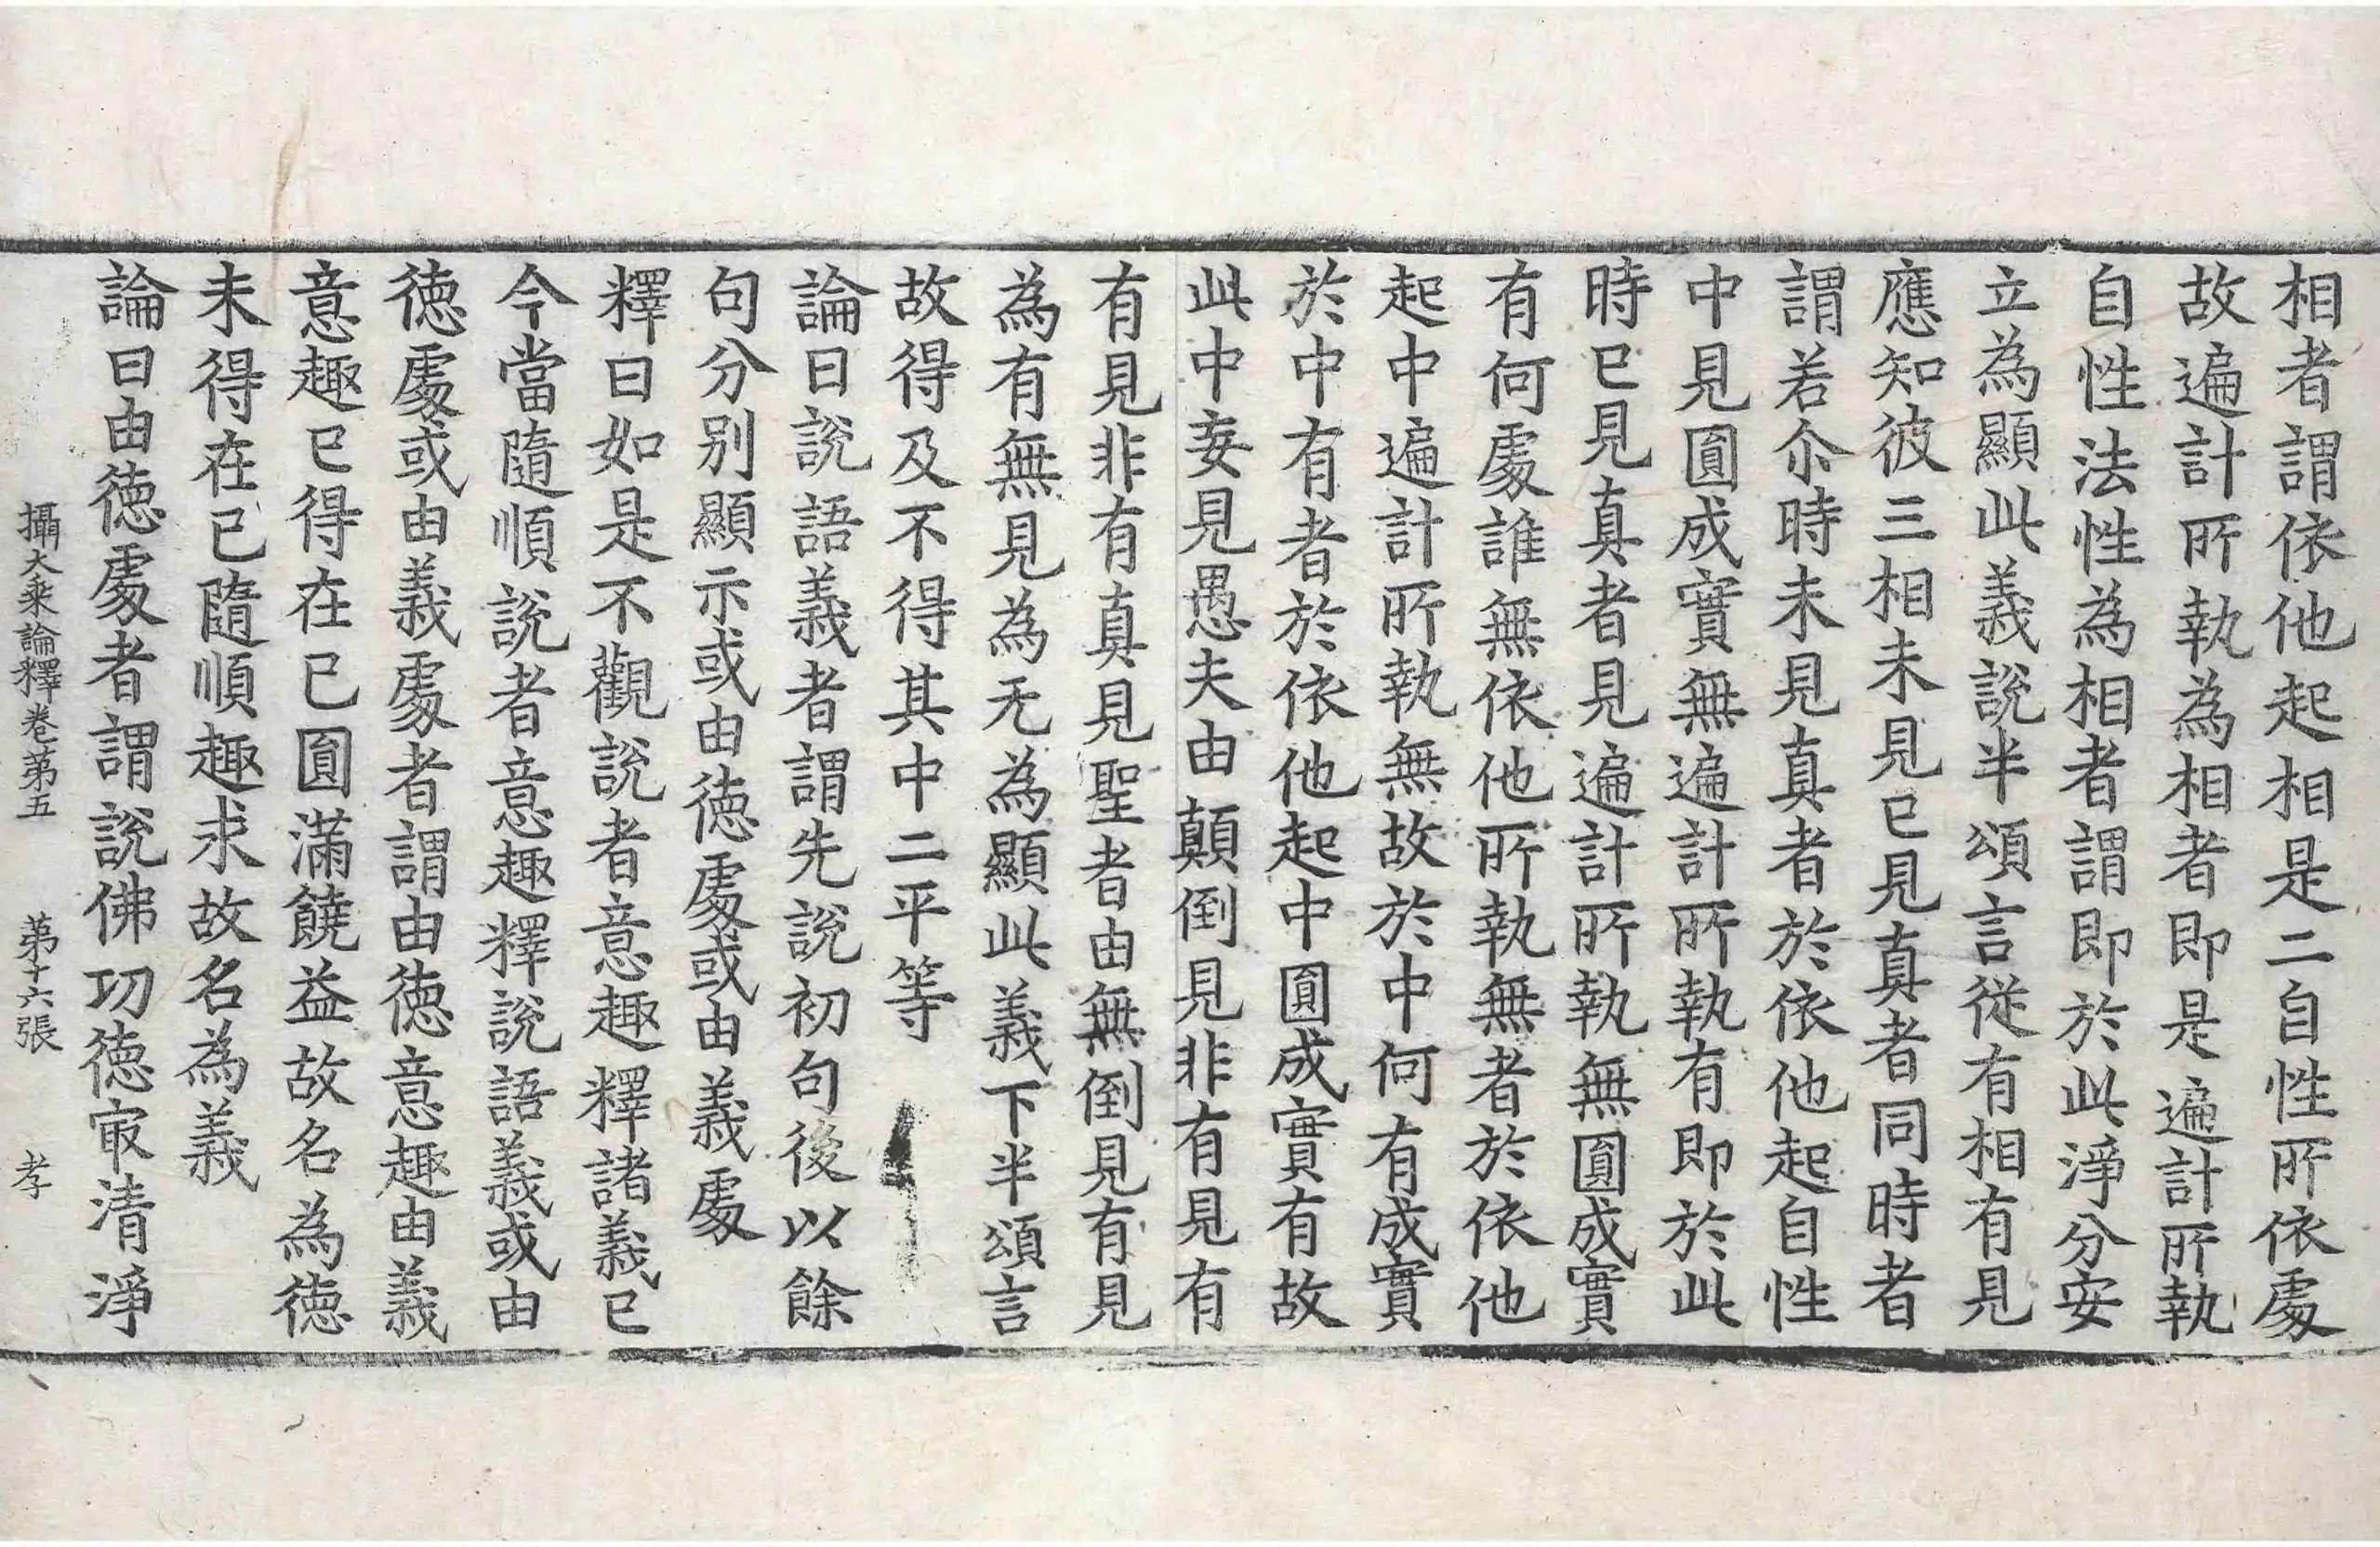 相者謂依他起相是二自性所依處
故遍計所執為相者即是遍計所執
自性法性為相者謂即於此淨分安
立為顯此義說半頌言從有相有見
應知彼三相未見已見真者同時者
謂若尒時未見真者於依他起自性
中見圓成實無遍計所執有即於此
時已見真者見遍計所執無圓成實
有何處誰無依他所執無者於依他
起中遍計所執無故於中何有成實
於中有者於依他起中圓成實有故
此中妄見愚夫由顛倒見非有見有
有見非有真見聖者由無倒見有見
為有無見為无為顯此義下半頌言
故得及不得其中二平等
論曰說語義者謂先說初句後以餘
句分別顯示或由德處或由義處
釋曰如是不觀說者意趣釋諸義已
今當隨順說者意趣釋說語義或由
德處或由義處者謂由德意趣由義
意趣已得在已圓滿饒益故名為德
未得在已隨順趣求故名為義
論曰由德處者謂說佛功德㝡清淨
攝大乘論釋卷第五 第十六張 孝